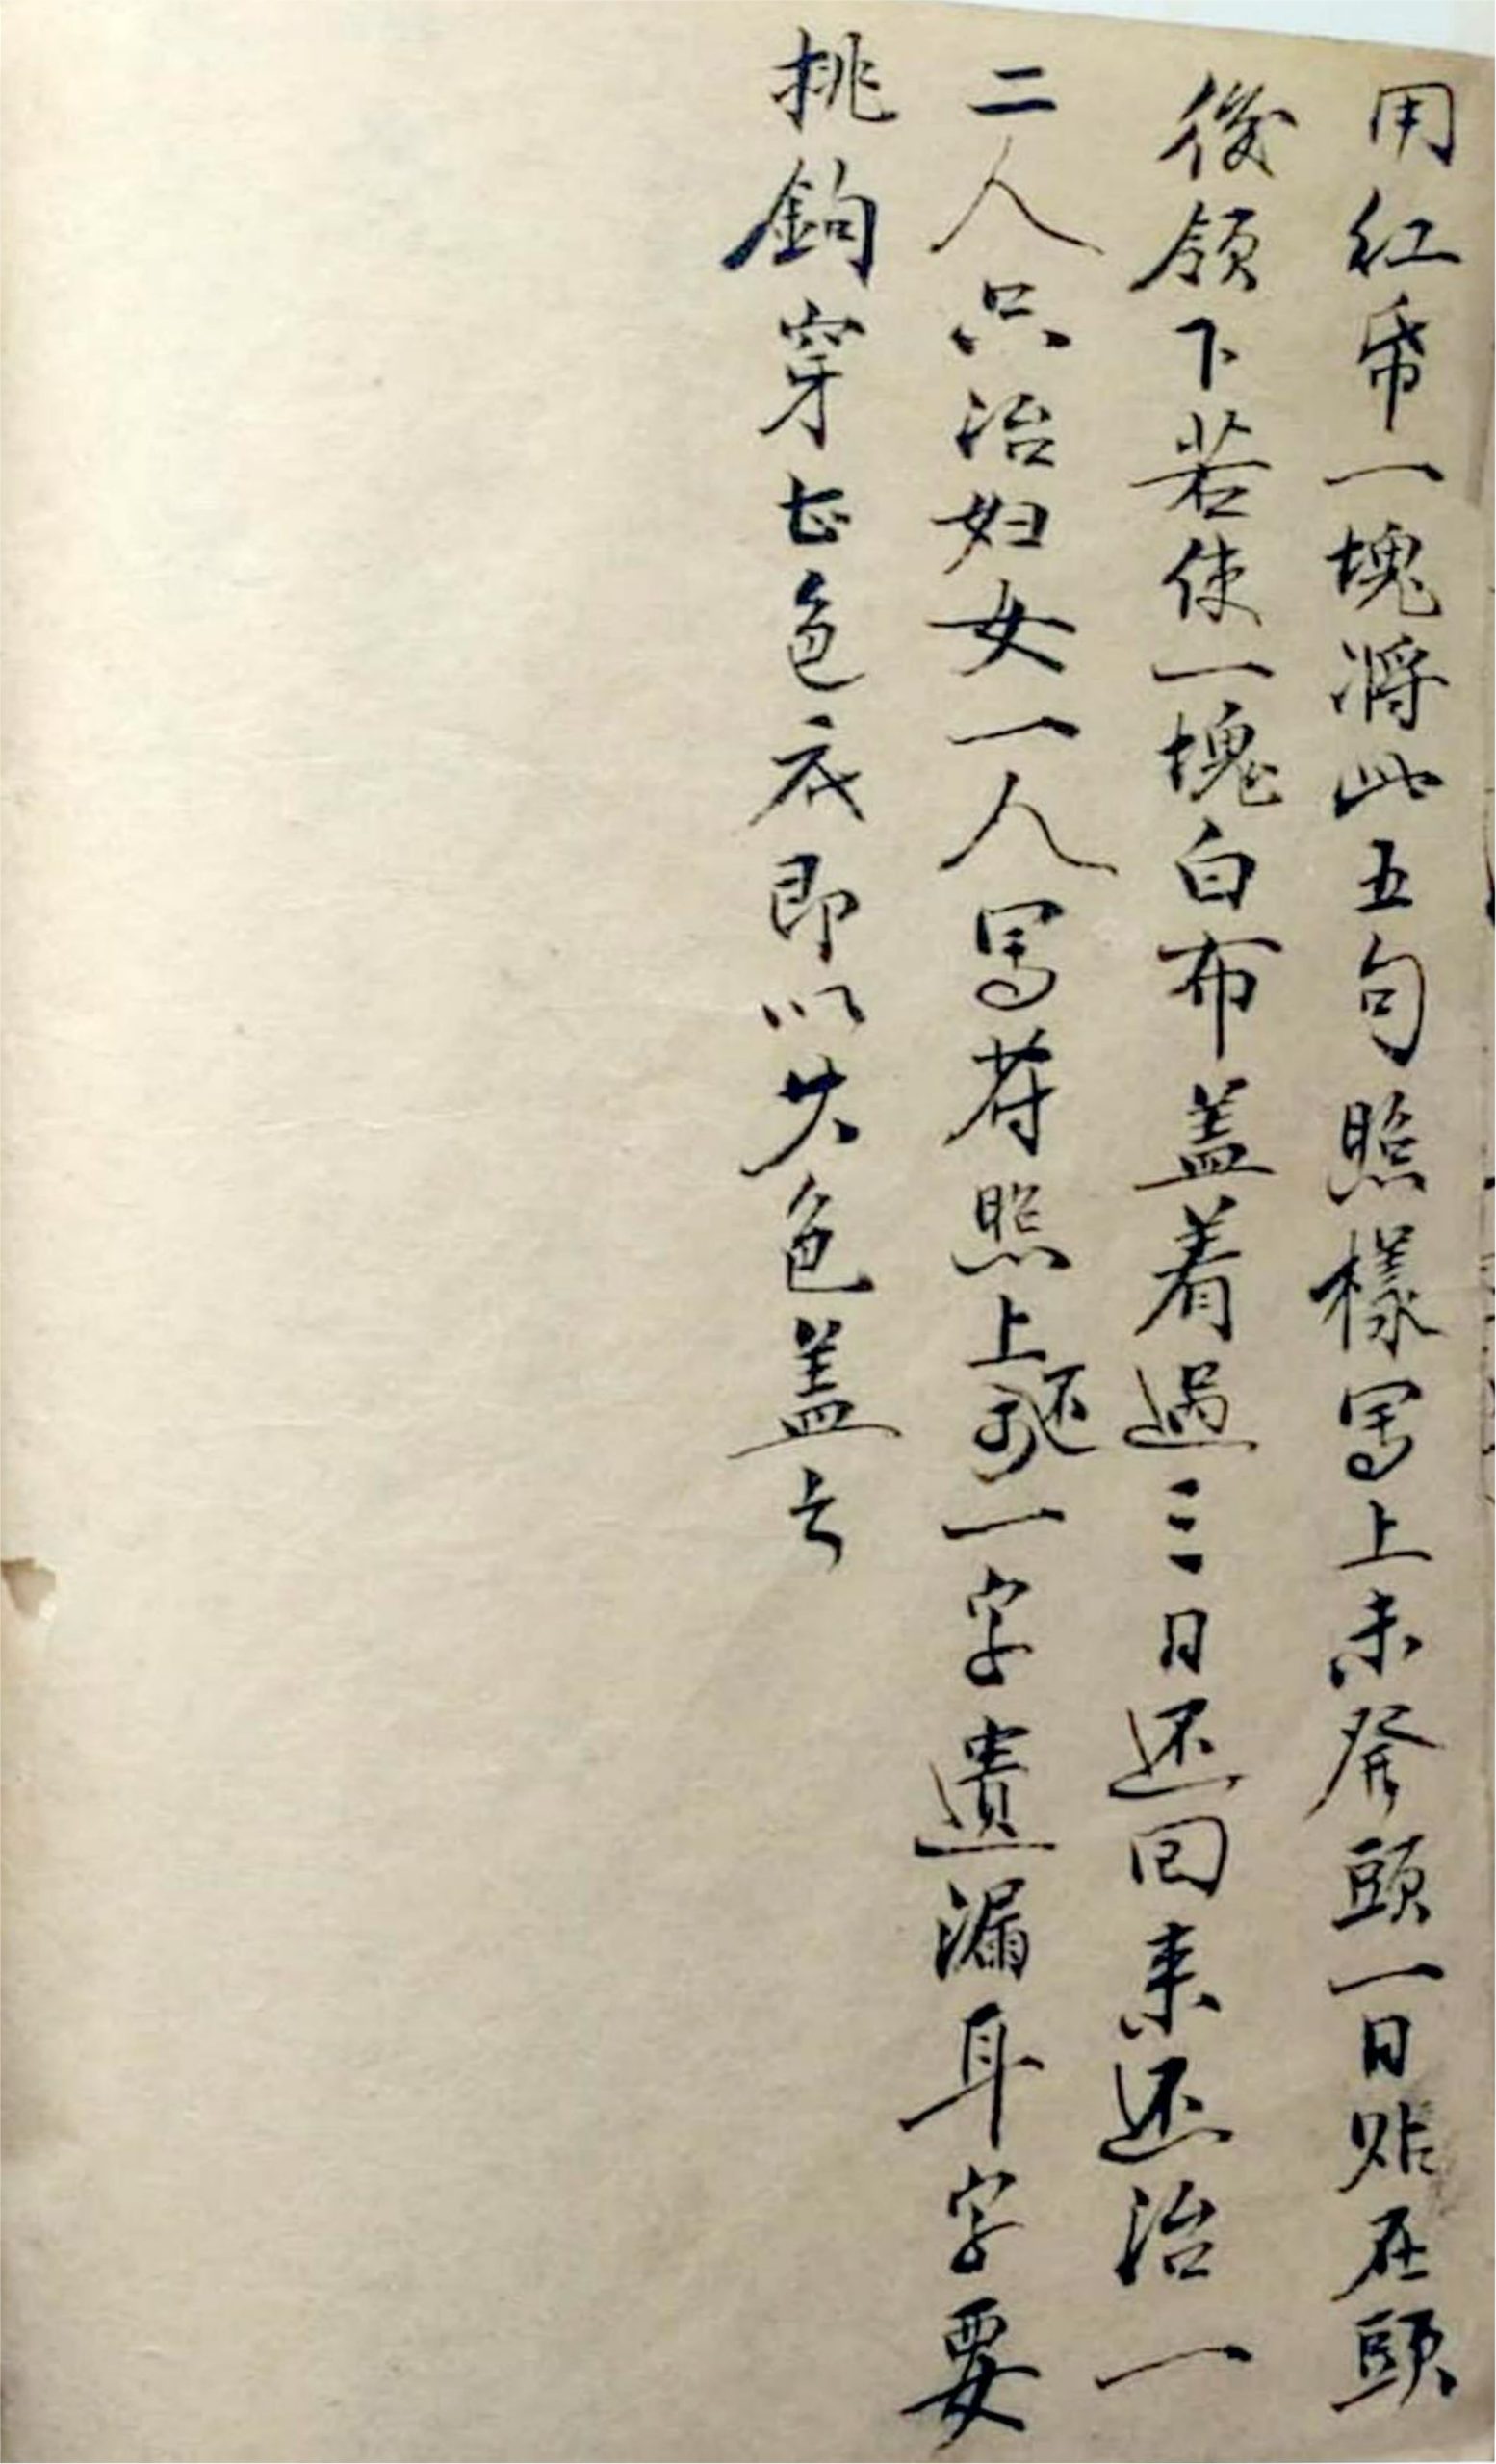 用红帋一塊将此五句照樣写上未發頭一日贴在頭
後领下若使一塊白布盖着過三日还回来还治一
二人只治妇女一人写符照上还一字遗漏耳字要
挑鈎穿色底即以色盖